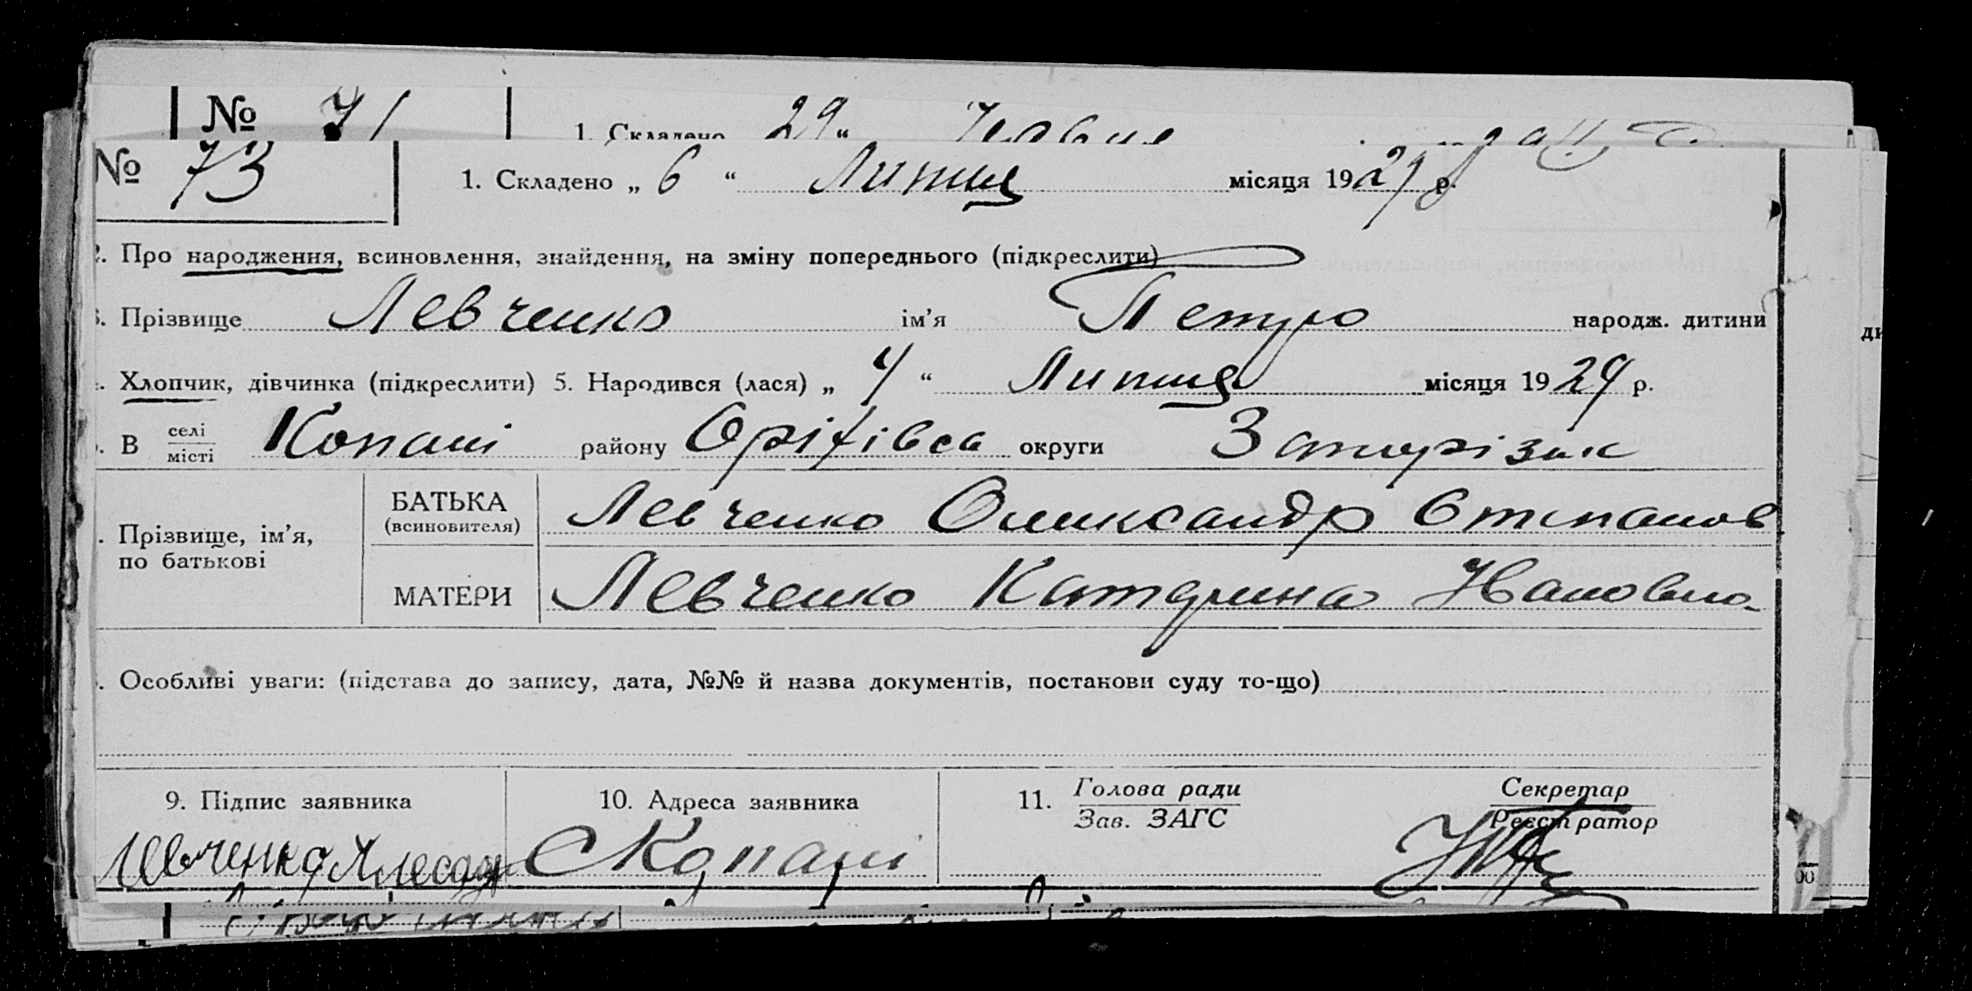 № 71 1. Складено 29“ Червня
№ 73 1. Складено „ 6 “ Липня місяця 1929 р.
2. Про народження, всиновлення, знайдення, на зміну попереднього (підкреслити)
3. Прізвище Левченко ім’я Петро народж. дитини
Хлопчик, дівчинка (підкреслити) 5. Народився (лася) „ 4 “ Липня місяця 1929 р.
В селі місті Копані району Оріхівсь округи Запоріжж
БАТЬКА
(всиновителя)
Левченко Олександр Степанов
Прізвище, ім’я,
по батькові
МАТЕРИ Левченко Катерина
Особливі уваги: (підстава до запису, дата, №№ й назва документів, постанови суду то-що)
9. Підпис заявника 10. Адреса заявника 11. Голова ради Секретар
Зав. ЗАГС Реєстратор
С Копані